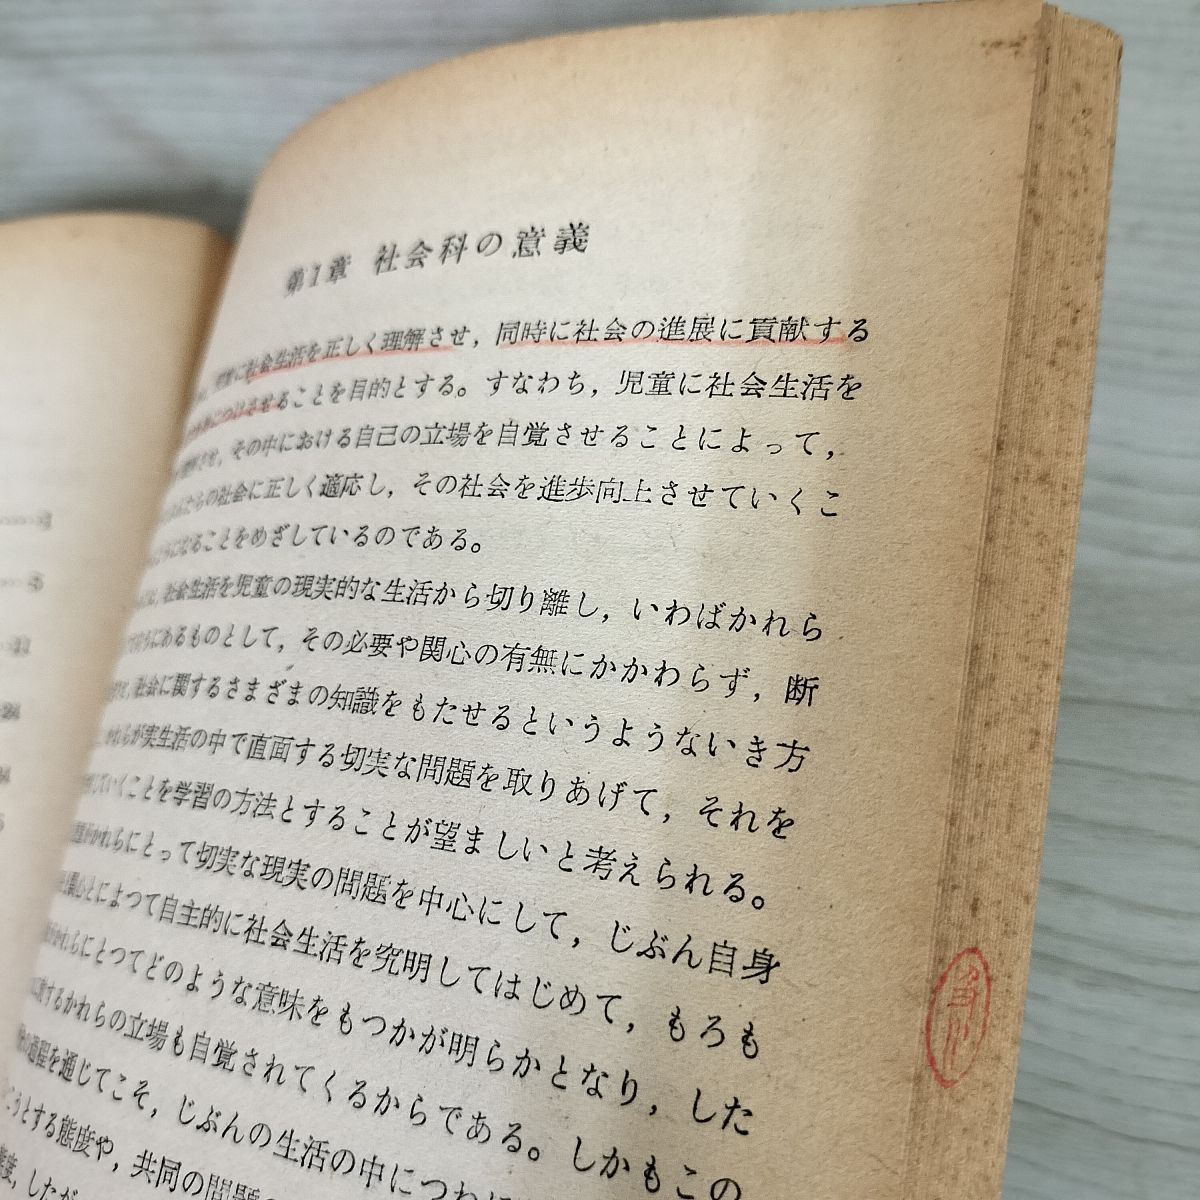 第1章 社会科の意義
児童に社会生活を正しく理解させ，同時に社会の進展に貢献する
させることを目的とする。すなわち，児童に社会生活を
させ，その中における自己の立場を自覚させることによって，
たちの社会に正しく適応し，その社会を進歩向上させていくこ
ようになることをめざしているのである。
社会生活を児童の現実的な生活から切り離し，いわばかれら
にあるものとして，その必要や関心の有無にかかわらず，断
社会に関するさまざまの知識をもたせるというようないき方
かれらが実生活の中で直面する切実な問題を取りあげて，それを
していくことを学習の方法とすることが望ましいと考えられる。
かれらにとって切実な現実の問題を中心にして，じぶん自身
関心とによつて自主的に社会生活を究明してはじめて，もろも
かれらにとつてどのような意味をもつかが明らかとなり，した
に対するかれらの立場も自覚されてくるからである。しかもこの
過程を通じてこそ，じぶんの生活の中に
こうとする態度や，共同の問題
態度，したが
21
24